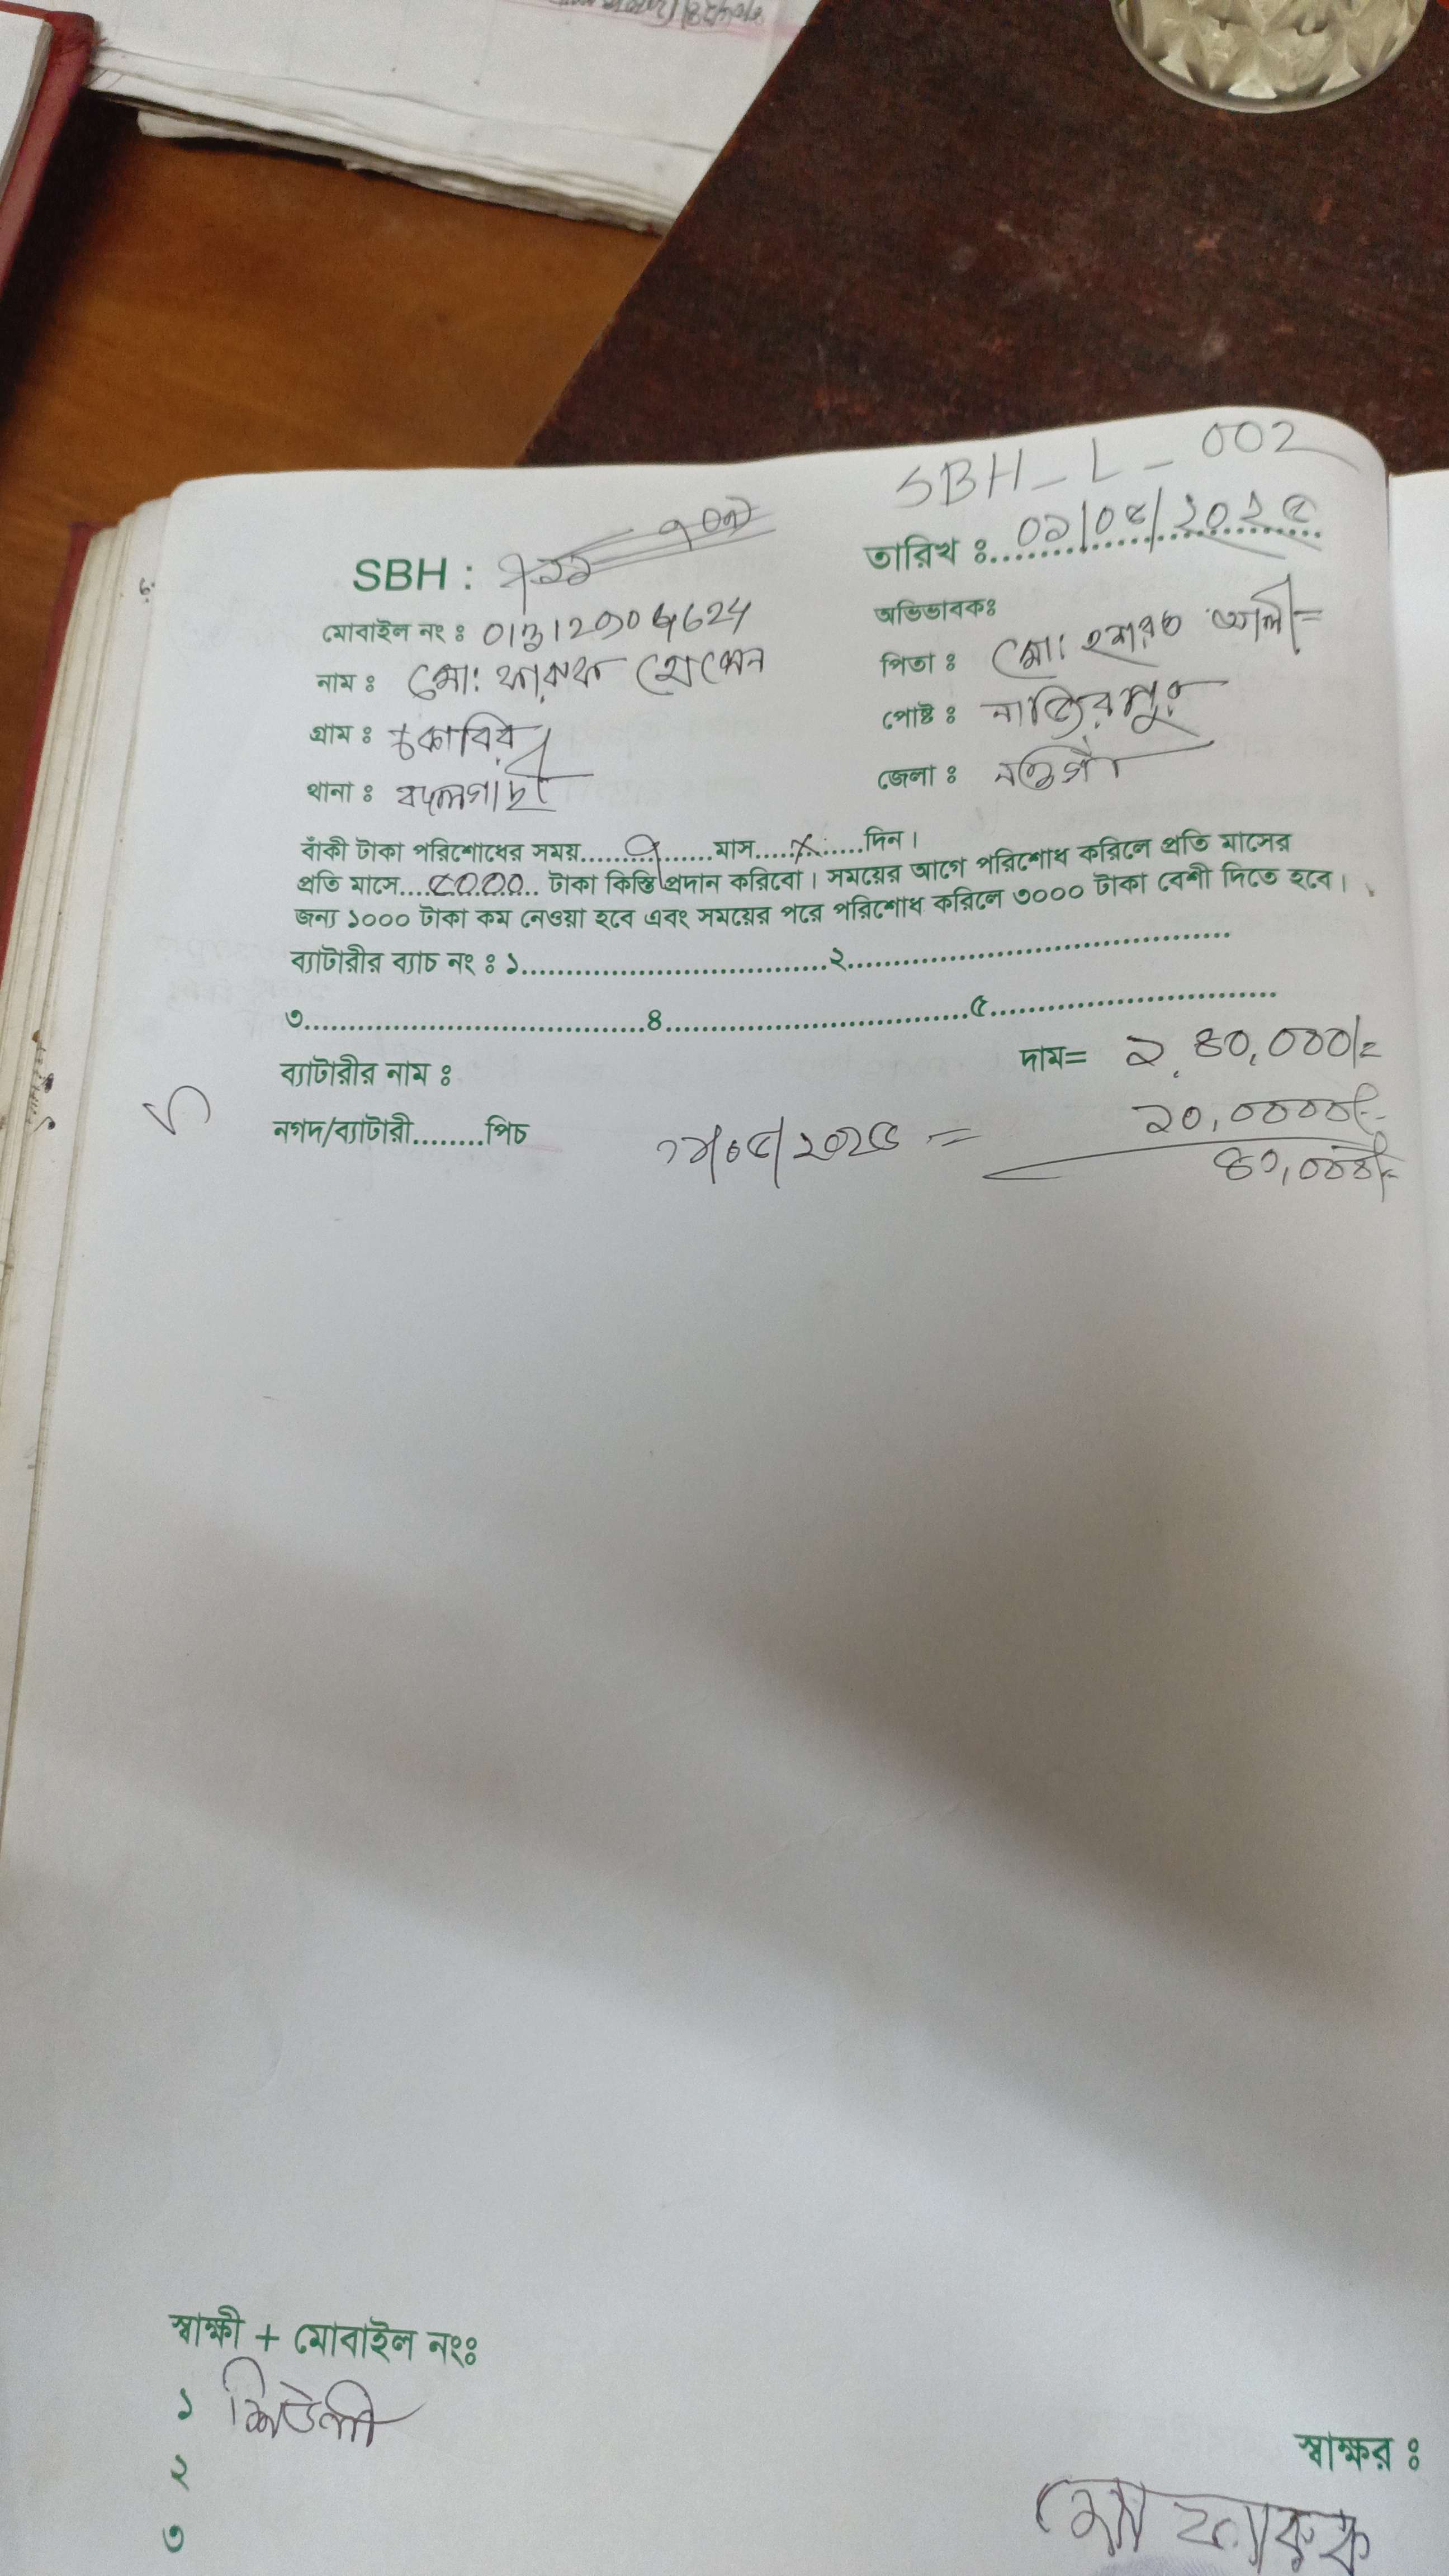 SBH_L_002
SBH :
তারিখ ঃ 0৯/0৫/২০২৫
মোবাইল নং ঃ
অভিভাবকঃ
নাম ঃ মো: ফারুক হোসেন
পিতা ঃ মো: হযরত আলী
গ্রাম ঃ
পোষ্ট ঃ নাজিরপুর
থানা ঃ বদলগাছী
জেলা ঃ নওগাঁ
বাঁকী টাকা পরিশোধের সময়.....৭.....মাস.....×.....দিন।
প্রতি মাসে....৫০০০.. টাকা কিস্তি প্রদান করিবো। সময়ের আগে পরিশোধ করিলে প্রতি মাসের
জন্য ১০০০ টাকা কম নেওয়া হবে এবং সময়ের পরে পরিশোধ করিলে ৩০০০ টাকা বেশী দিতে হবে।
ব্যাটারীর ব্যাচ নং ঃ ১..............................২..............................
৩..............................৪..............................৫..............................
ব্যাটারীর নাম ঃ
দাম= ২,৪০,০০০/=
নগদ/ব্যাটারী........পিচ
স্বাক্ষী + মোবাইল নংঃ
১ শিউলী
২
৩
স্বাক্ষর ঃ
মোঃ ফারুক